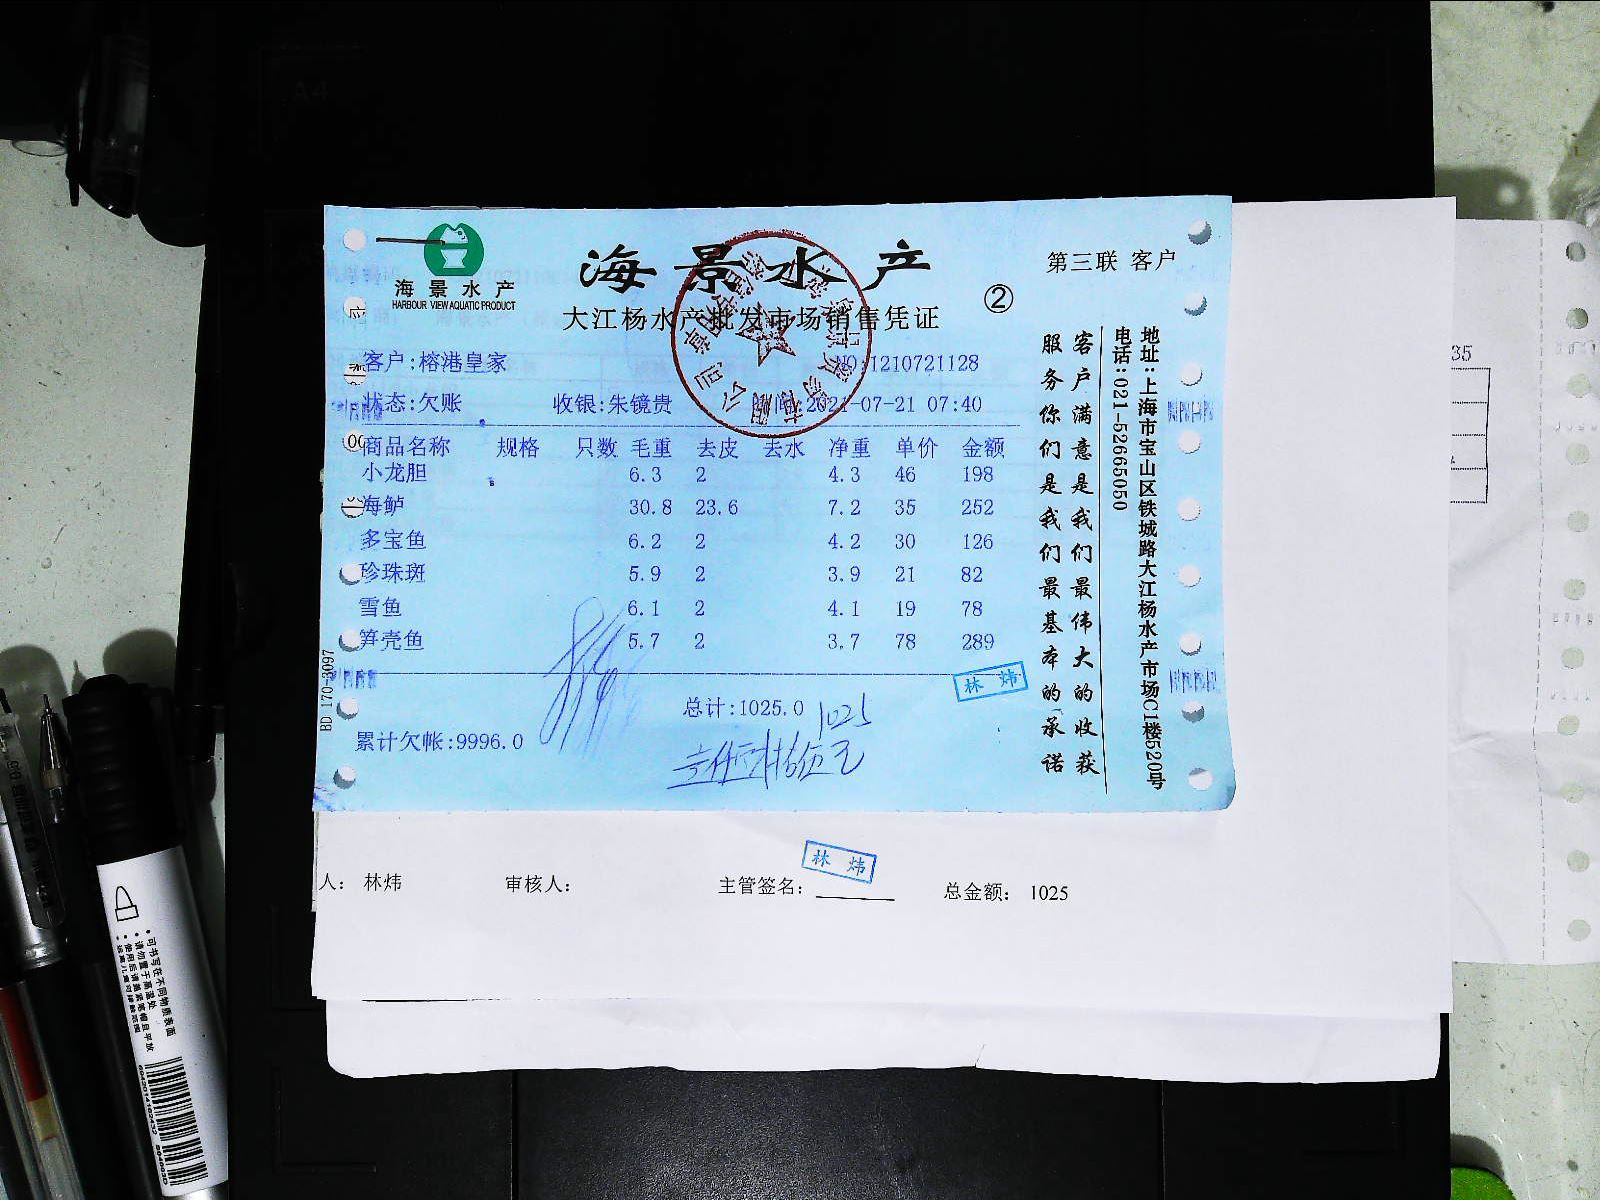 海景水产
HARBOUR VIEW AQUATIC PRODUCT
海景水产
第三联 客户
大江杨水产批发市场销售凭证
②
客户:榕港皇家
NO:1210721128
状态:欠账 收银:朱镜贵 2021-07-21 07:40
商品名称 规格 只数 毛重 去皮 去水 净重 单价 金额
小龙胆 6.3 2 4.3 46 198
海鲈 30.8 23.6 7.2 35 252
多宝鱼 6.2 2 4.2 30 126
珍珠斑 5.9 2 3.9 21 82
雪鱼 6.1 2 4.1 19 78
笋壳鱼 5.7 2 3.7 78 289
总计:1025.0 1025
累计欠帐:9996.0
林炜
BD 170-3097
客户满意是我们最伟大的收获
服务你们是我们最基本的承诺
地址:上海市宝山区铁城路大江杨水产市场C1楼520号
电话:021-52665050
人: 林炜 审核人: 主管签名: 林炜 总金额: 1025
35
·可书写在不同物质表面
·请勿置于高温处
·使用后请盖紧笔帽且平放